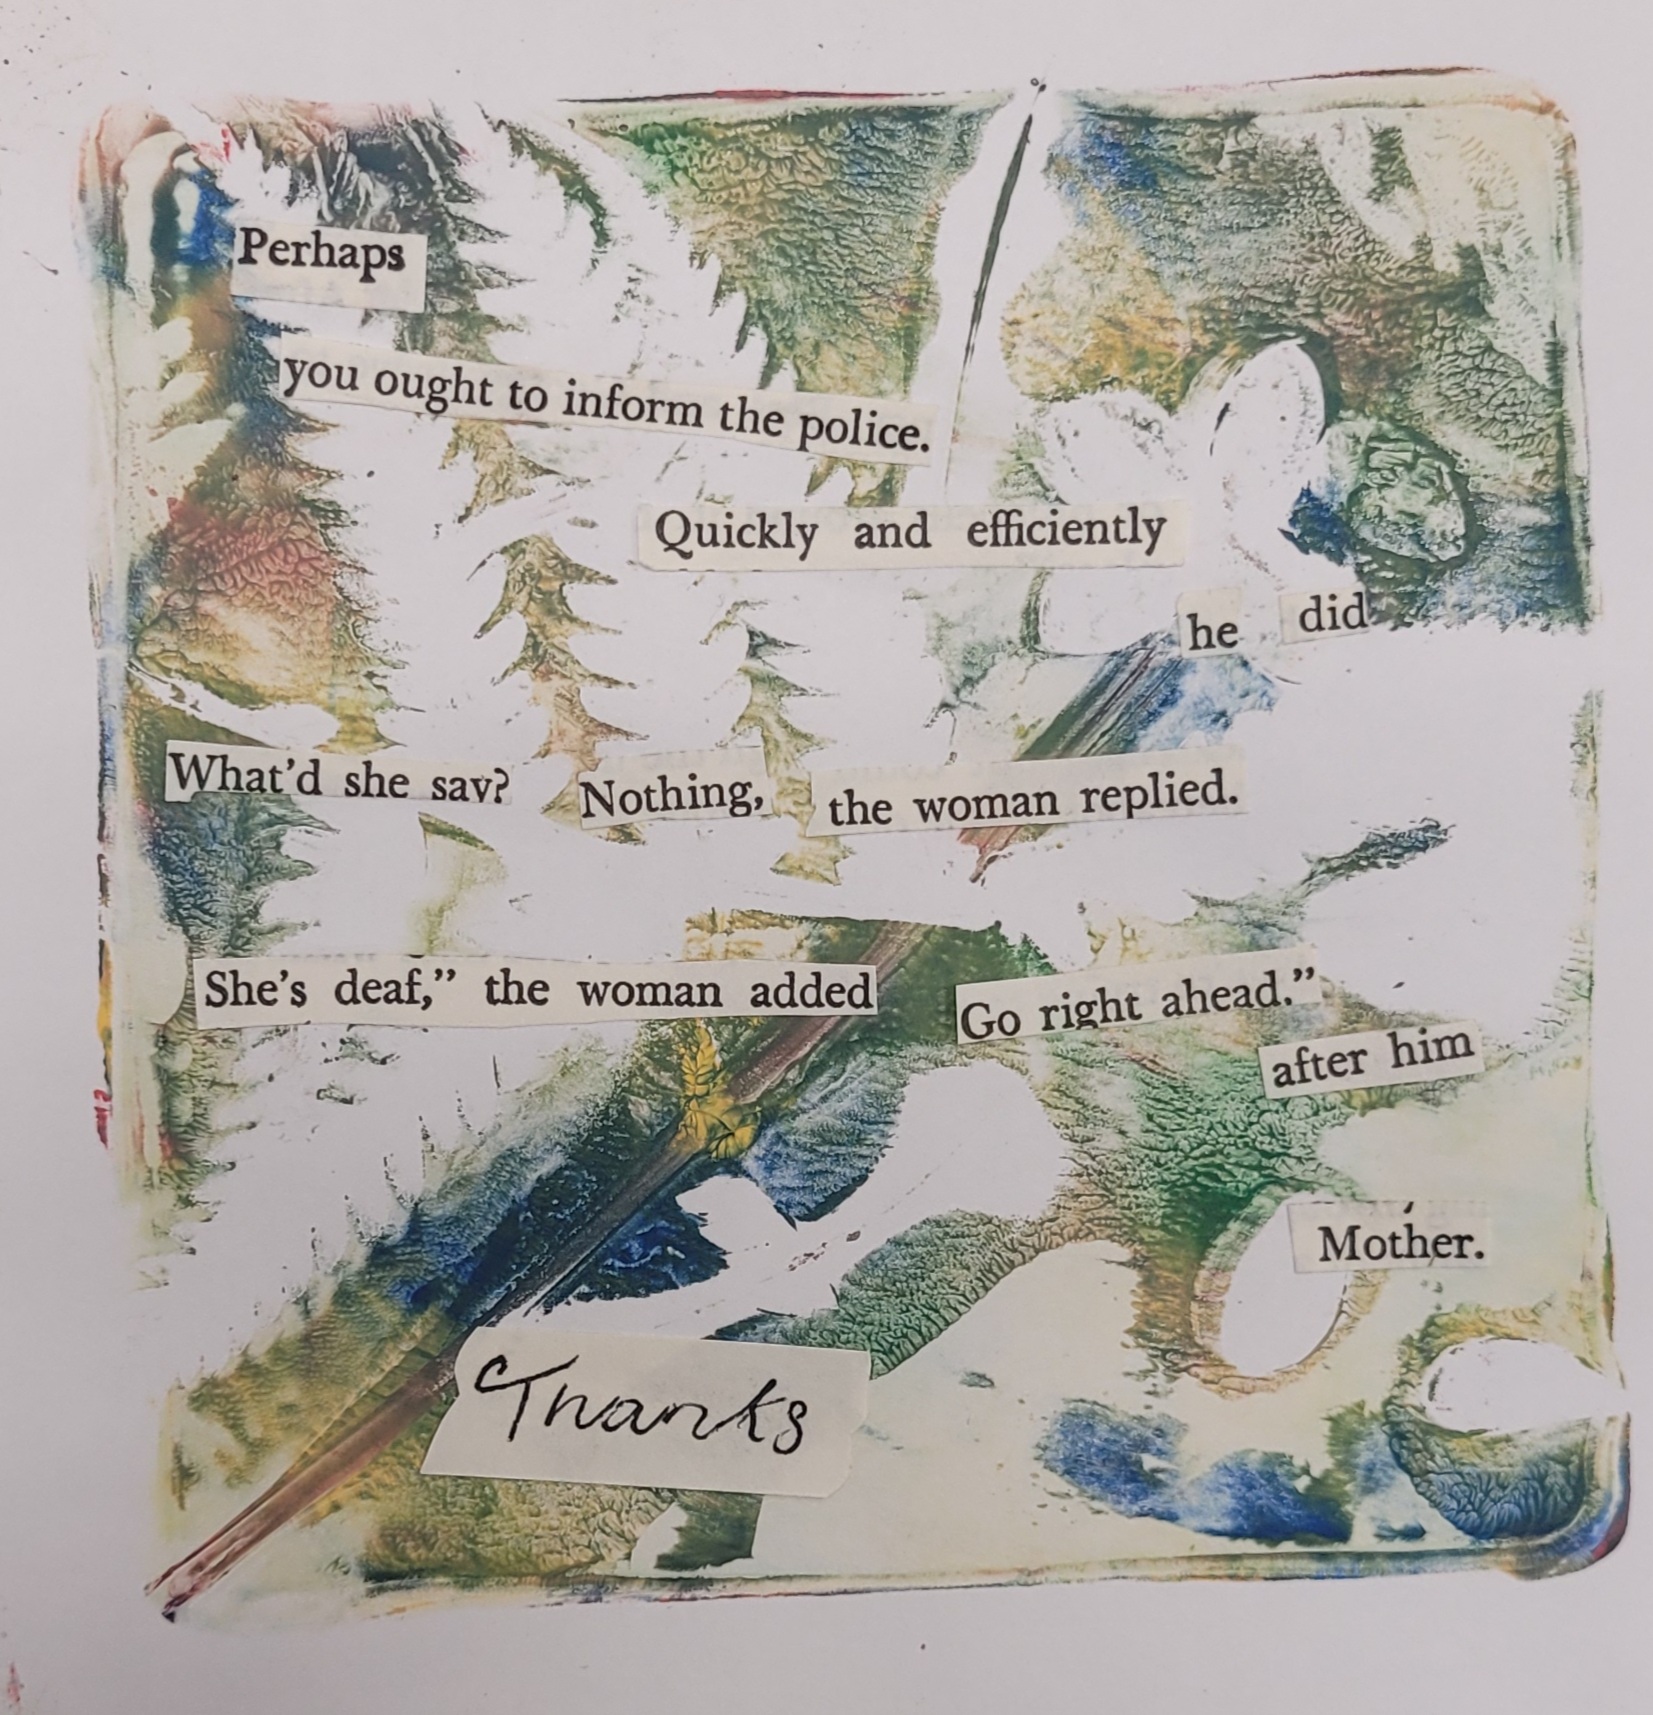 Perhaps
you ought to inform the police.
Quickly and efficiently
he did
What'd she say? Nothing, the woman replied.
She's deaf,” the woman added
Go right ahead.”
after him
Mother.
Thanks